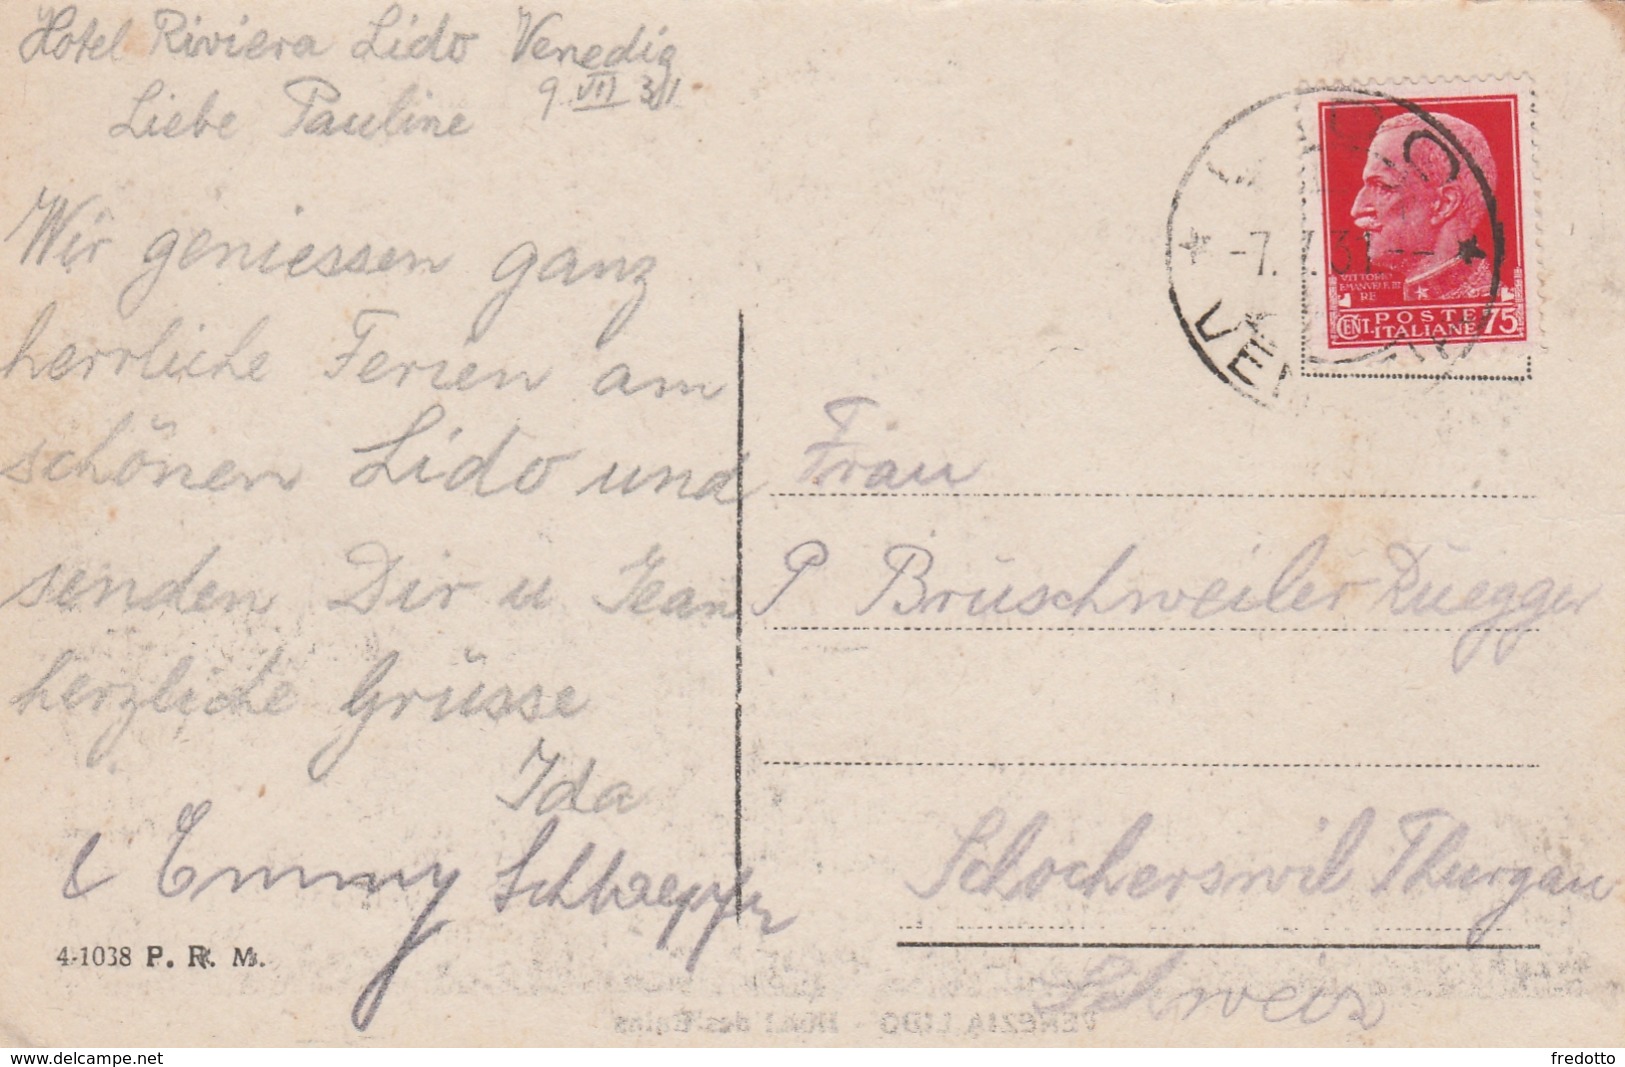 Hotel Riviera Lido Venedig
9 VII 31
Liebe Pauline
Wir geniessen ganz
herrliche Ferien am
schönen Lido und
senden Dir u Jean
herzliche Grüsse
Ida
Emmy Schlaepfer
4-1038 P. R. M.
LIDO
-7.7.31.--
VENEZIA
VITTORIO
EMANVELE III
RE
CENT. POSTE 75
ITALIANE
Frau
P Brüschweiler Rüegger
Schocherswil Thurgau
Schweiz
VENEZIA LIDO - Hôtel des Bains
www.delcampe.net
fredotto